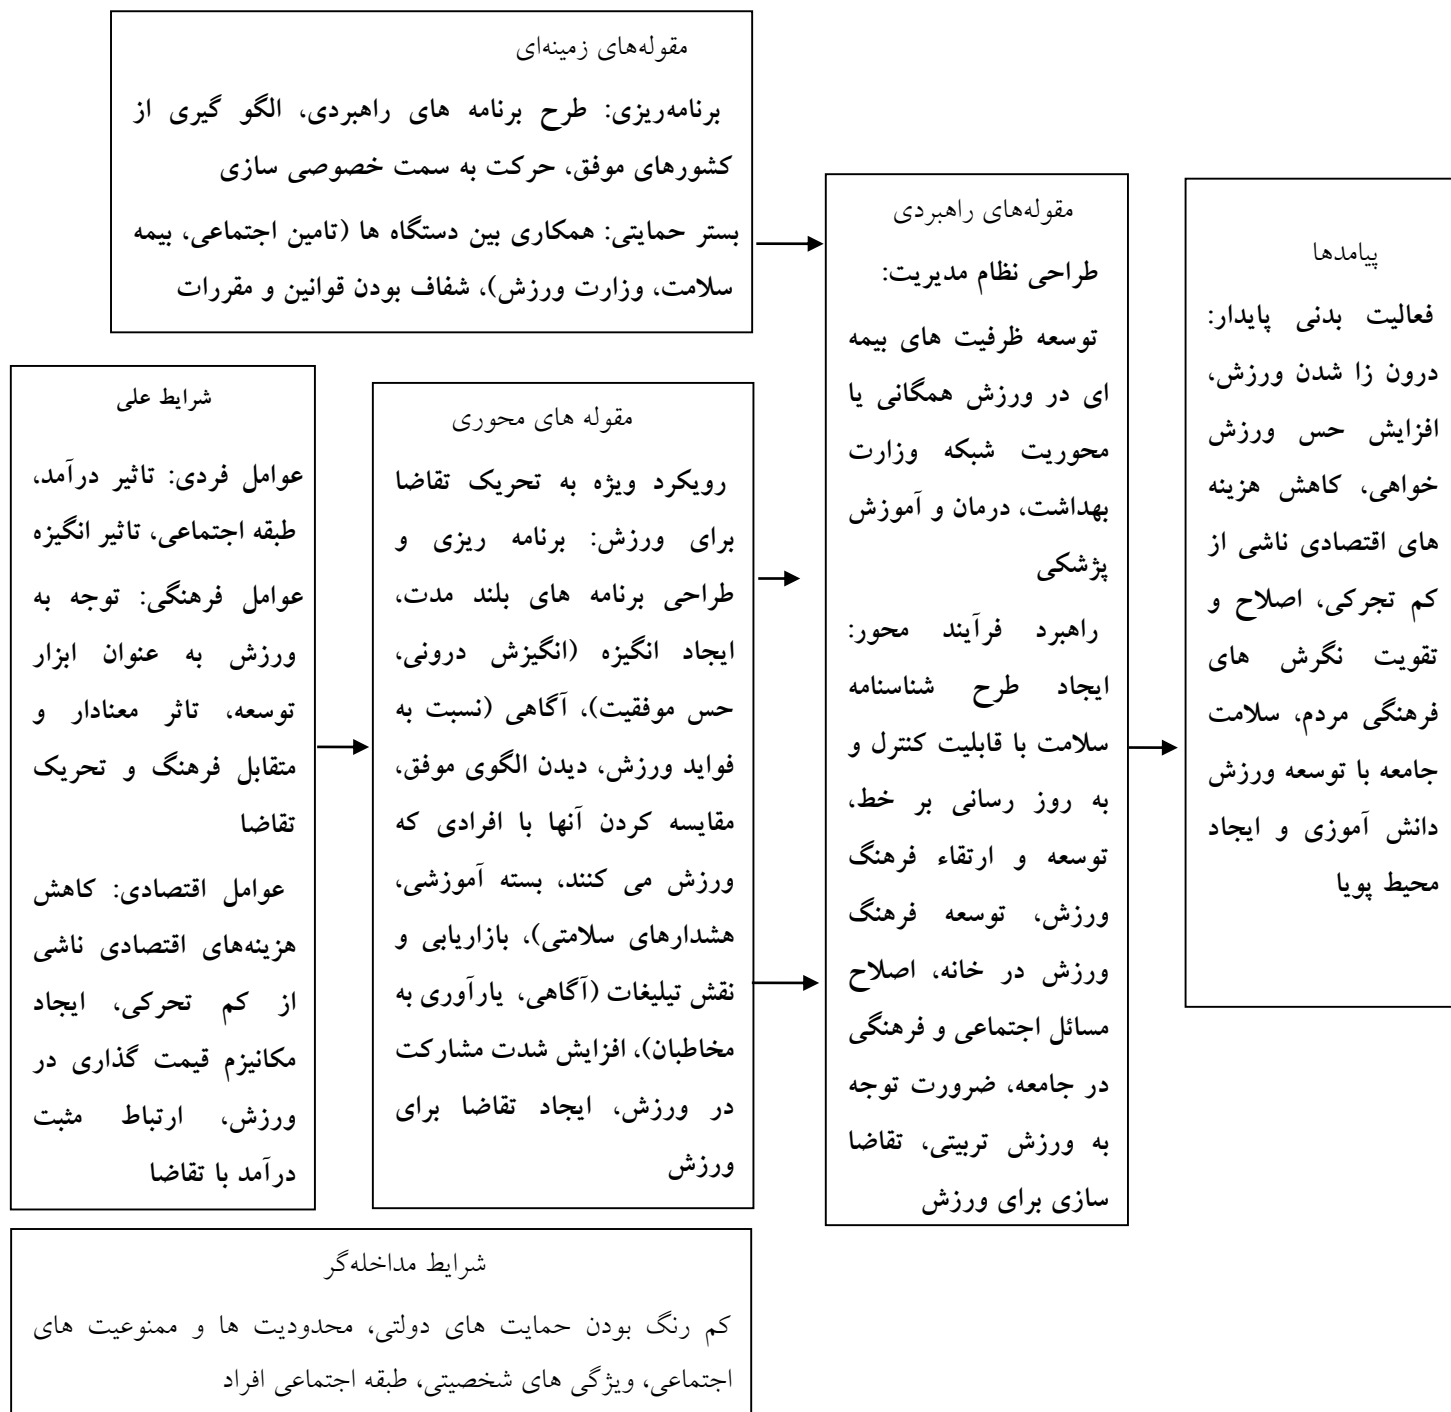 مقوله‌های زمینه‌ای
برنامه‌ریزی: طرح برنامه های راهبردی، الگو گیری از
کشورهای موفق، حرکت به سمت خصوصی سازی
بستر حمایتی: همکاری بین دستگاه ها (تامین اجتماعی، بیمه
سلامت، وزارت ورزش)، شفاف بودن قوانین و مقررات
شرایط علی
عوامل فردی: تاثیر درآمد،
طبقه اجتماعی، تاثیر انگیزه
عوامل فرهنگی: توجه به
ورزش به عنوان ابزار
توسعه، تاثر معنادار و
متقابل فرهنگ و تحریک
تقاضا
عوامل اقتصادی: کاهش
هزینه‌های اقتصادی ناشی
از کم تحرکی، ایجاد
مکانیزم قیمت گذاری در
ورزش، ارتباط مثبت
درآمد با تقاضا
مقوله های محوری
رویکرد ویژه به تحریک تقاضا
برای ورزش: برنامه ریزی و
طراحی برنامه های بلند مدت،
ایجاد انگیزه (انگیزش درونی،
حس موفقیت)، آگاهی (نسبت به
فواید ورزش، دیدن الگوی موفق،
مقایسه کردن آنها با افرادی که
ورزش می کنند، بسته آموزشی،
هشدارهای سلامتی)، بازاریابی و
نقش تیلیغات (آگاهی، یارآوری به
مخاطبان)، افزایش شدت مشارکت
در ورزش، ایجاد تقاضا برای
ورزش
مقوله‌های راهبردی
طراحی نظام مدیریت:
توسعه ظرفیت های بیمه
ای در ورزش همگانی یا
محوریت شبکه وزارت
بهداشت، درمان و آموزش
پژشکی
راهبرد فرآیند محور:
ایجاد طرح شناسنامه
سلامت با قابلیت کنترل و
به روز رسانی بر خط،
توسعه و ارتقاء فرهنگ
ورزش، توسعه فرهنگ
ورزش در خانه، اصلاح
مسائل اجتماعی و فرهنگی
در جامعه، ضرورت توجه
به ورزش تربیتی، تقاضا
سازی برای ورزش
پیامدها
فعالیت بدنی پایدار:
درون زا شدن ورزش،
افزایش حس ورزش
خواهی، کاهش هزینه
های اقتصادی ناشی از
کم تجرکی، اصلاح و
تقویت نگرش های
فرهنگی مردم، سلامت
جامعه با توسعه ورزش
دانش آموزی و ایجاد
محیط پویا
شرایط مداخله‌گر
کم رنگ بودن حمایت های دولتی، محدودیت ها و ممنوعیت های
اجتماعی، ویژگی های شخصیتی، طبقه اجتماعی افراد